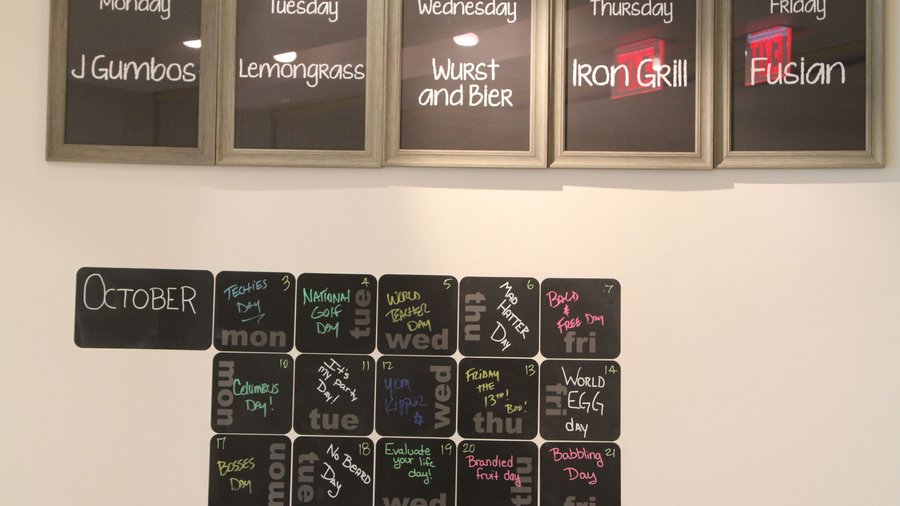 Monday
J Gumbos
Tuesday
Lemongrass
Wednesday
Wurst
and Bier
Thursday
Iron Grill
Friday
Fusian
October
3
Techies
Day
mon
4
National
Golf
Day
tue
5
World
Teacher
Day
wed
6
Mad
Hatter
Day
thu
7
Bald
&
Free Day
fri
10
Columbus
Day!
mon
11
It's
my party
Day!
tue
12
Yom
Kippur
wed
13
Friday
the
13th!
Boo!
thu
14
World
Egg
day
fri
17
Bosses
Day
mon
18
No Beard
Day
tue
19
Evaluate
your life
day!
wed
20
Brandied
fruit day
thu
21
Babbling
Day
fri